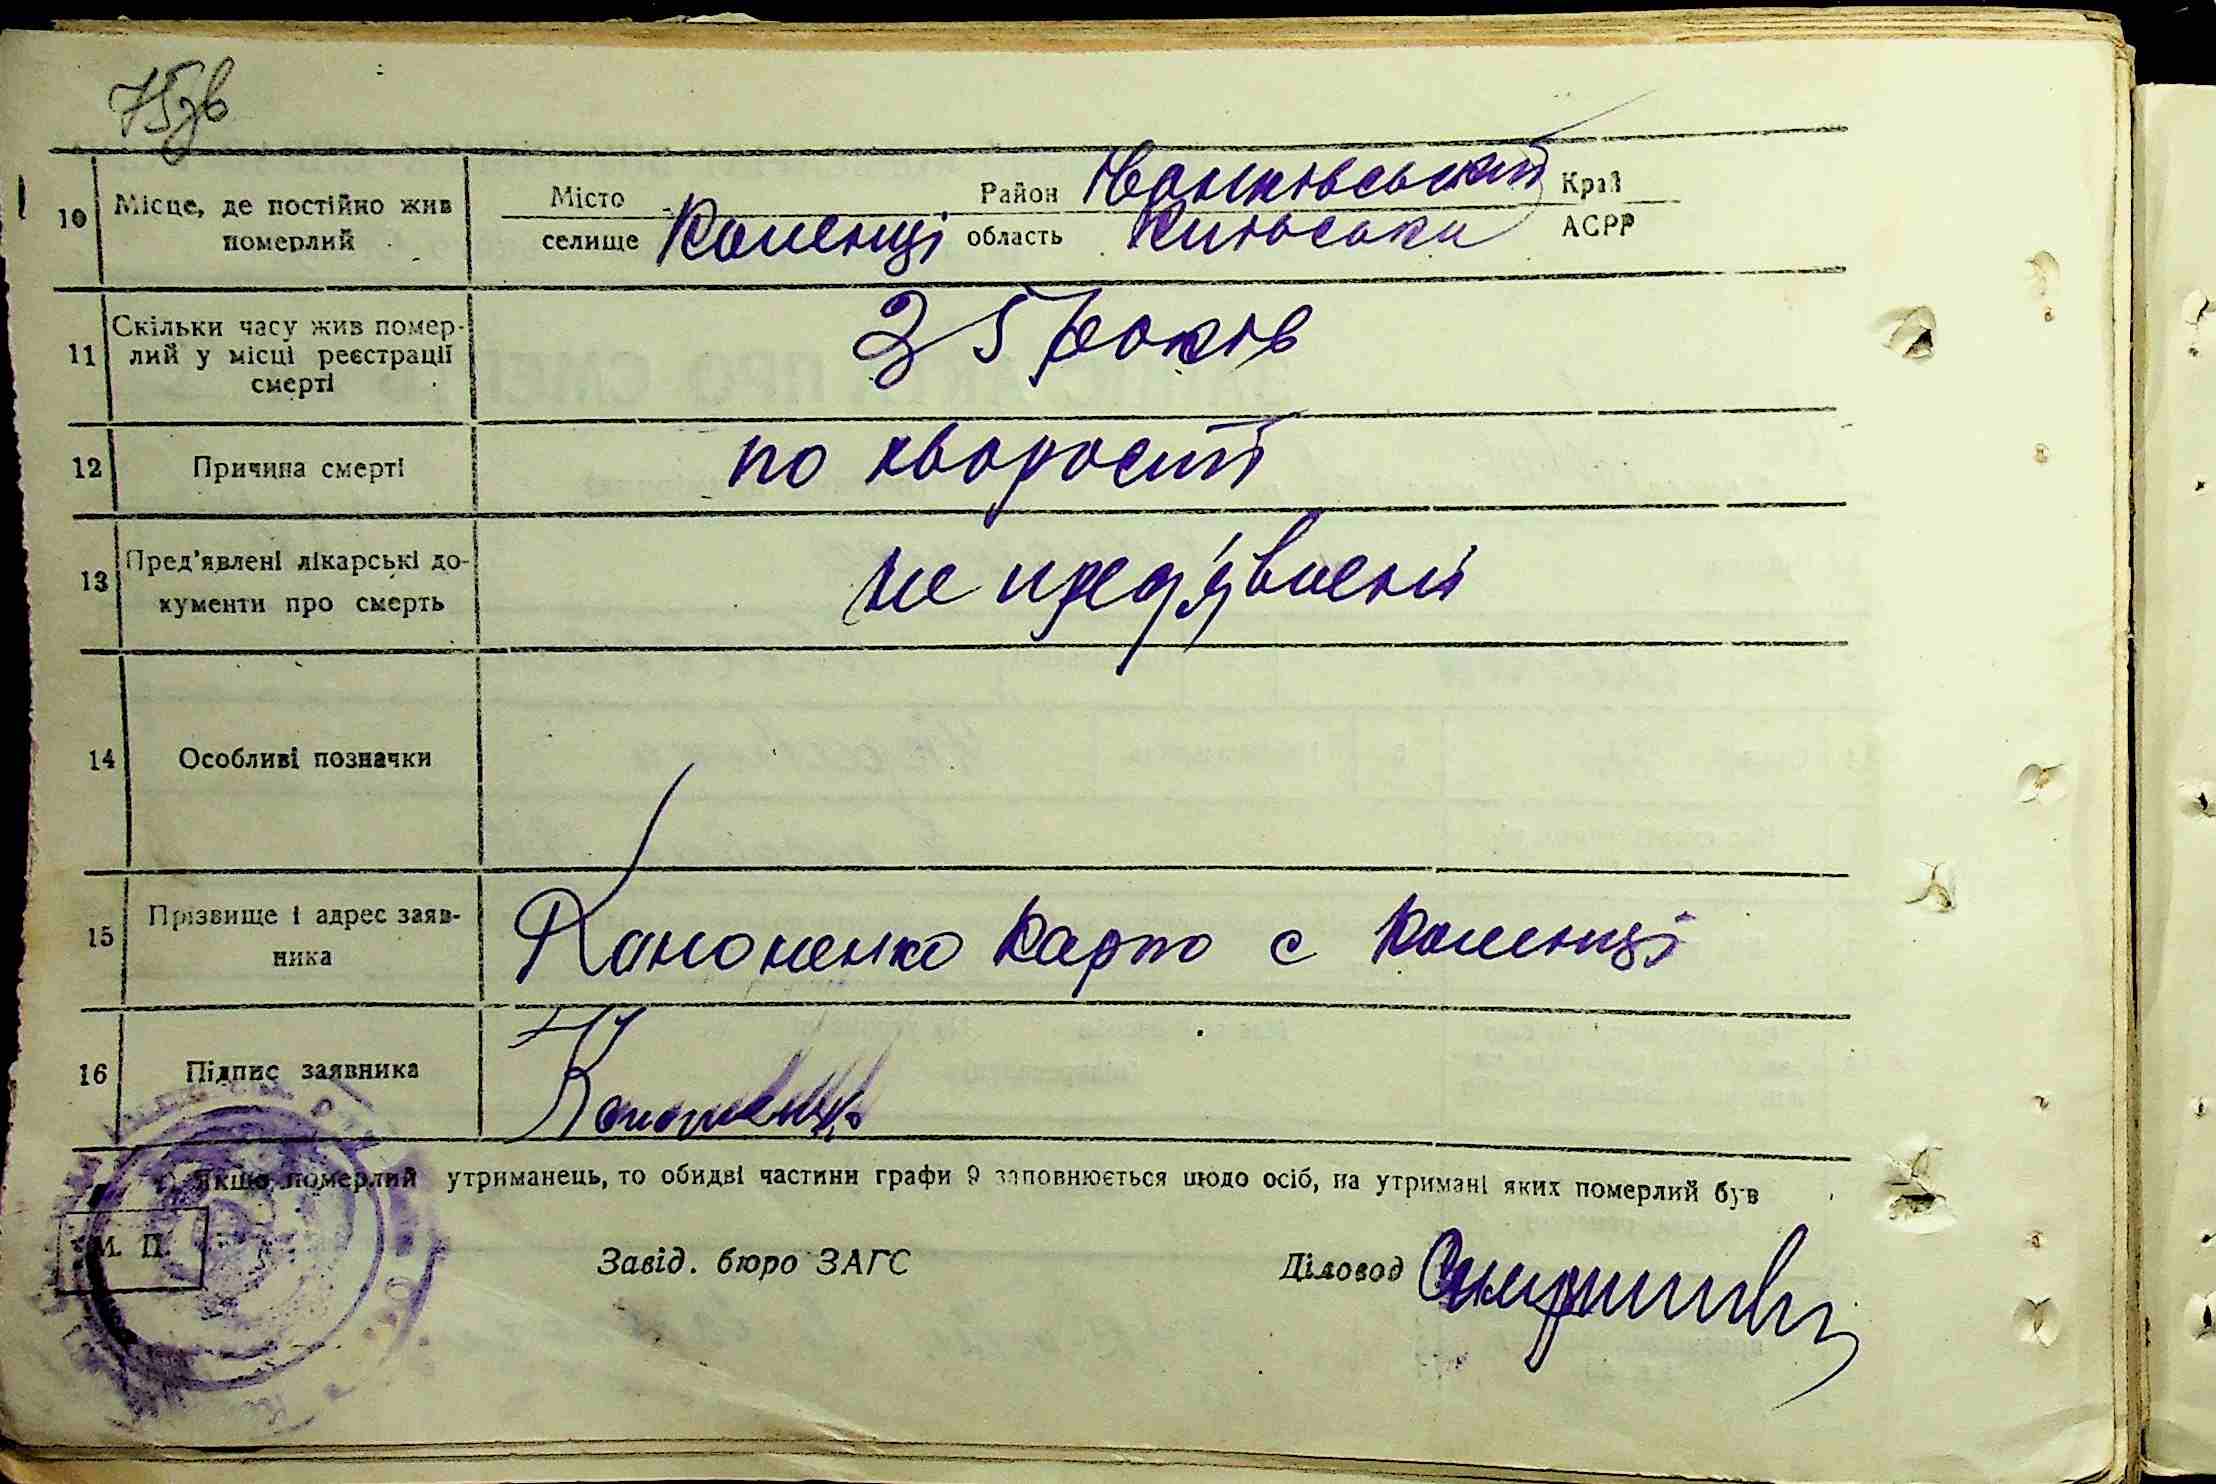 75зв
10 Місце, де постійно жив померлий
Місто
селище Коленці
Район Іванківський
область Київська
Край
АСРР
11 Скільки часу жив помер-
лий у місці реєстрації
смерті
25 років
12 Причина смерті
по хворості
13 Пред'явлені лікарські до-
кументи про смерть
не предявлені
14 Особливі позначки
15 Прізвище і адрес заяв-
ника
Кононенко Карпо с Коленці
16 Підпис заявника
Якщо померлий утриманець, то обидві частини графи 9 заповнюється щодо осіб, на утримані яких померлий був
М. П.
Завід. бюро ЗАГС
Діловод